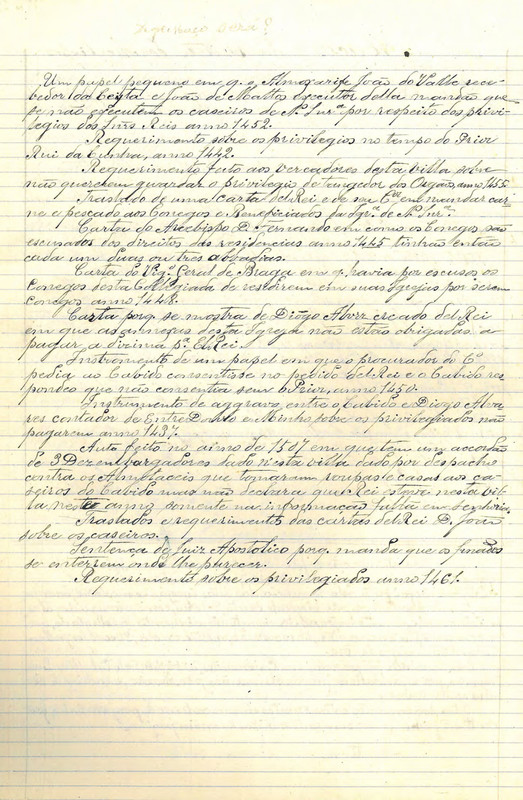 Um papel pequeno em q. o Almoxarife João do Valle rece-
bedor da Ceyta e João de Mattos executor della mandão que
se não executem os caseiros de N. Snr.ª por respeito dos privi-
legios dos Snrs Reis anno 1452.
Requerimento sobre os privilegios no tempo do Prior
Rui da Cunha, anno 1442.
Requerimento feito aos vereadores desta villa sobre
não quererem guardar o privilegio do tangedor dos Orgãos, anno 1455
Traslado de uma carta del Rei e de seu C.º em mandar car-
ne e pescado aos Conegos e Beneficiados da Igr.ª de N.ª Snr.ª
Carta do Arcebispo D. Fernando em como os Conegos são
escusados dos direitos das residencias anno 1445 tinhão então
cada um duas ou tres abbadias.
Carta do Vig.º Geral de Braga em q. havia por escusos os
Conegos desta Collegiada de residirem em suas Igrejas por serem
Conegos anno 1448.
Carta porq. se mostra de Diogo Alvrz creado del Rei
em que as conegas desta Igreja não estão obrigadas a
pagar a dizima p.ª El Rei.
Instrumento de um papel em que o procurador do C.º
pedia ao Cabido consentisse no pedido del Rei e o Cabido res-
pondeo que não consentia sem o Prior, anno 1450.
Instrumento de aggravo, entre o Cabido e Diogo Alva-
res contador da Entre Douro e Minho sobre os privilegiados não
pagarem anno 1437.
Auto feito no anno de 1507 em que tem um accordão
de 3 Dezembargadores dado n'esta villa dado por despacho
contra os que tomaram roupas e casas aos ca-
seiros do Cabido mas não declara que Rei estava nesta vil-
la neste anno somente na informação falla em Senhorio.
Traslados e requerimento das cartas del Rei D. João
sobre os caseiros.
Sentença do Juiz Apostolico porq. manda que os finados
se enterrem onde lhe parecer.
Requerimento sobre os privilegiados anno 1461.